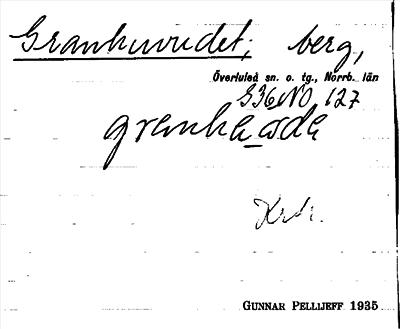 Granhuvudet; berg,
Överluleå sn. o. tg., Norrb. län
S36NO 127
Krh.
GUNNAR PELLIJEFF 1935